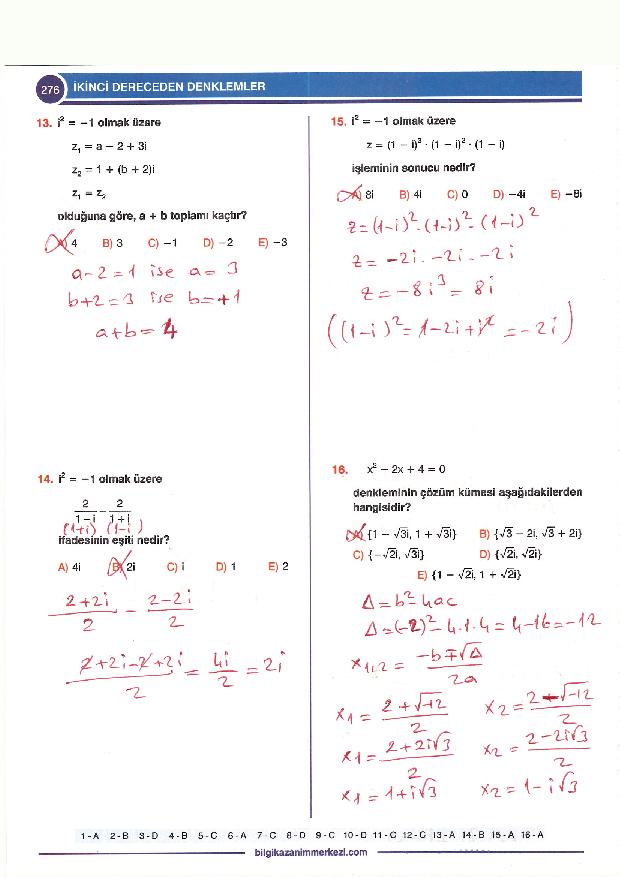 276 İKİNCİ DERECEDEN DENKLEMLER
13. i² = −1 olmak üzere
z₁ = a − 2 + 3i
z₂ = 1 + (b + 2)i
z₁ = z₂
olduğuna göre, a + b toplamı kaçtır?
A) 4 B) 3 C) −1 D) −2 E) −3
a-2=1 ise a= 3
b+2=3 ise b=+1
a+b= 4
14. i² = −1 olmak üzere
2/(1−i) − 2/(1+i)
(1+i) (1-i)
ifadesinin eşiti nedir?
A) 4i B) 2i C) i D) 1 E) 2
(2+2i)/2 - (2-2i)/2
(2+2i-2+2i)/2 = 4i/2 = 2i
15. i² = −1 olmak üzere
z = (1 − i)³ · (1 − i)² · (1 − i)
işleminin sonucu nedir?
A) 8i B) 4i C) 0 D) −4i E) −8i
z=(1-i)²-(1-i)²-(1-i)²
z= -2i. -2i. -2i
z= -8i³= 8i
((1-i)²=1-2i+i²=-2i)
16. x² − 2x + 4 = 0
denkleminin çözüm kümesi aşağıdakilerden
hangisidir?
A) {1 − √3i, 1 + √3i} B) {√3 − 2i, √3 + 2i}
C) {−√2i, √3i} D) {√2i, √2i}
E) {1 − √2i, 1 + √2i}
Δ=b²-4ac
Δ=(-2)²-4.1.4=4-16=-12
x₁,₂ = (-b∓√Δ)/2a
x₁= (2+√-12)/2 x₂= (2-√-12)/2
x₁= (2+2i√3)/2 x₂= (2-2i√3)/2
x₁= 1+i√3 x₂= 1-i√3
1 - A 2 - B 3 - D 4 - B 5 - C 6 - A 7 - C 8 - D 9 - C 10 - D 11 - C 12 - C 13 - A 14 - B 15 - A 16 - A
bilgikazanimmerkezi.com